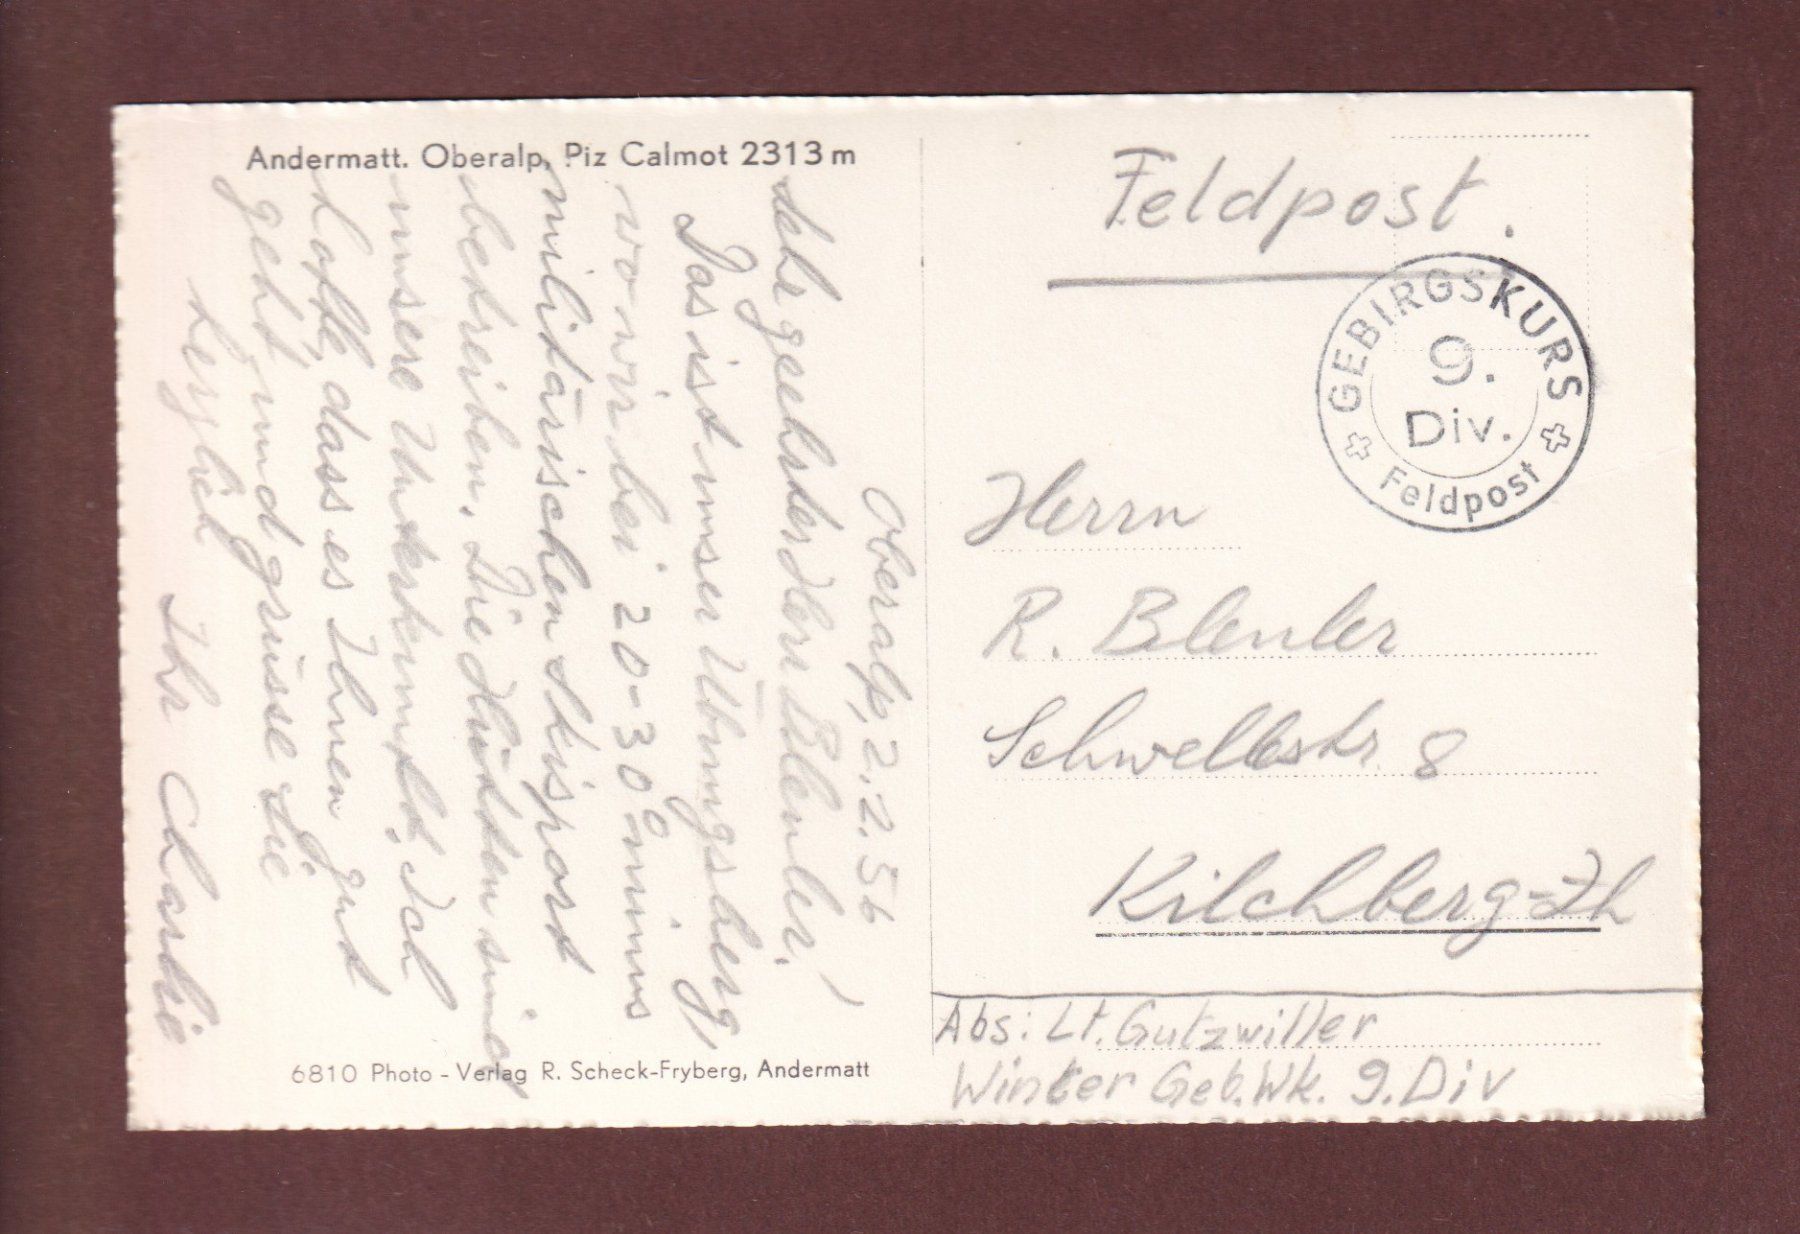 Andermatt. Oberalp, Piz Calmot 2313 m
Oberalp, 2.2.56
Sehr geehrter Herr Bleuler!
Das ist unser Übungsberg,
wo wir bei 20-30° minus
militärischen Skisport
betreiben. Die Hütten sind
unsere Unterkunft. Ich
hoffe, dass es Ihnen gut
geht, und grüsse Sie
herzlich Ihr Charlie
6810 Photo - Verlag R. Scheck-Fryberg, Andermatt
Feldpost.
GEBIRGSKURS
9.
Div.
Feldpost
Herrn
R. Bleuler
Schwellestr. 8
Kilchberg=Zh
Abs: Lt. Gutzwiller
Winter Geb. Wk. 9. Div